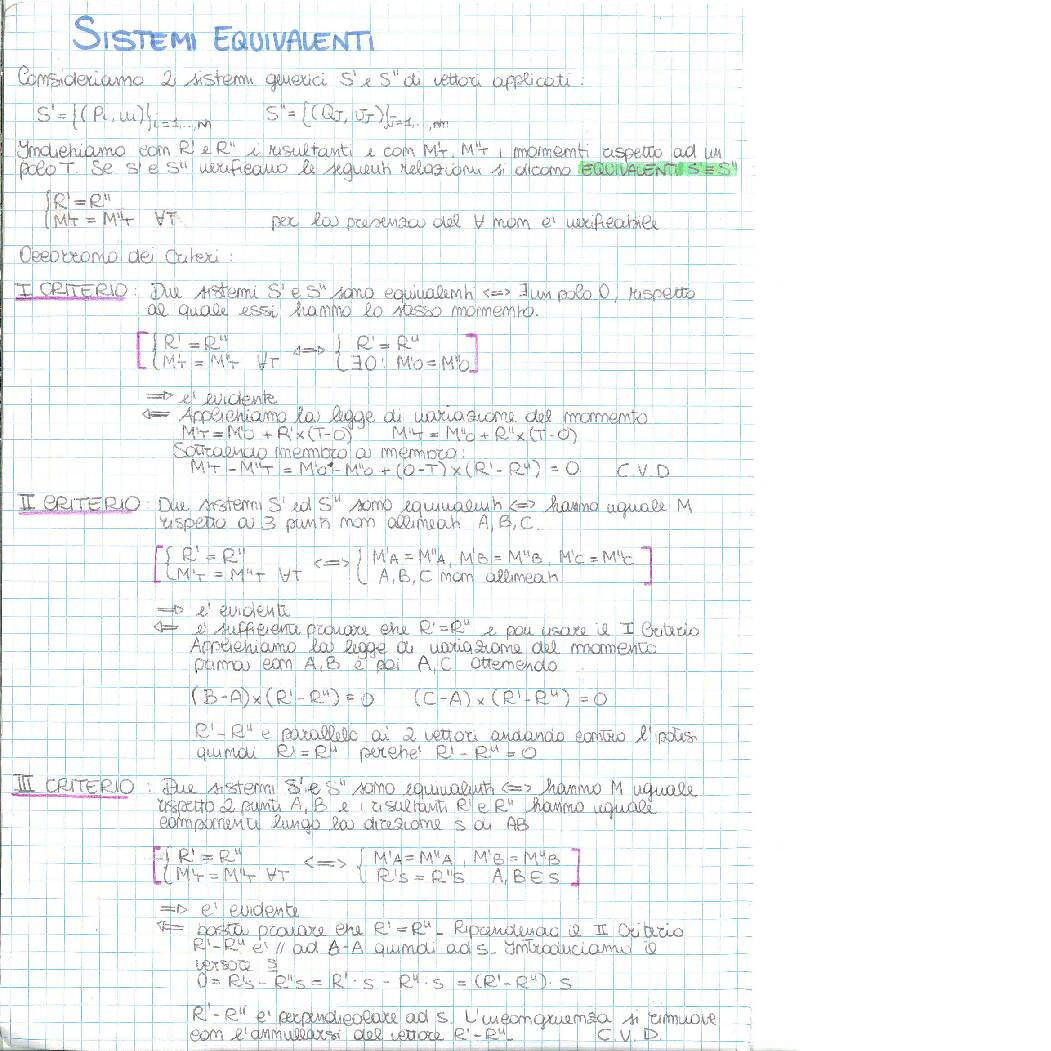 SISTEMI EQUIVALENTI
Consideriamo 2 sistemi generici S' e S" di vettori applicati:
S' = {(Pi, ui)}i=1,..,n    S" = {(QJ, VJ)}j=1,..,m
Indichiamo con R' e R" i risultanti e con M'T, M"T i momenti rispetto ad un
polo T. Se S' e S" verificano le seguenti relazioni si dicono EQUIVALENTI S' ≡ S"
{ R' = R"
{ M'T = M"T  ∀T    per la presenza del ∀ non e' verificabile
dei Criteri:
I CRITERIO: Due sistemi S' e S" sono equivalenti <=> ∃ un polo O, rispetto
al quale essi hanno lo stesso momento.
[ { R' = R"  <=>  { R' = R" ]
[ { M'T = M"T  ∀T    { ∃O: M'O = M"O ]
=> e' evidente
<= Applichiamo la legge di variazione del momento
M'T = M'O + R' × (T-O)    M"T = M"O + R" × (T-O)
Sottraendo membro a membro:
M'T - M"T = M'O - M"O + (O-T) × (R' - R") = 0    C.V.D
II CRITERIO: Due sistemi S' ed S" sono equivalenti <=> hanno uguale M
rispetto ai 3 punti non allineati A, B, C.
[ { R' = R"  <=>  { M'A = M"A, M'B = M"B, M'C = M"C ]
[ { M'T = M"T ∀T    { A, B, C non allineati ]
=> e' evidente
<= e' sufficiente provare che R' = R" e poi usare il I Criterio
Applichiamo la legge di variazione del momento
prima con A, B e poi A, C ottenendo
(B-A) × (R' - R") = 0    (C-A) × (R' - R") = 0
R' - R" e parallelo ai 2 vettori andando contro l'ipotesi
quindi R' = R" perche' R' - R" = 0
III CRITERIO: Due sistemi S' e S" sono equivalenti <=> hanno M uguale
rispetto 2 punti A, B e i risultanti R' e R" hanno uguale
componente lungo la direzione s di AB
[ { R' = R"  <=>  { M'A = M"A, M'B = M"B ]
[ { M'T = M"T ∀T    { R's = R"s  A, B ∈ s ]
=> e' evidente
<= basta provare che R' = R". Riprendendo il II Criterio
R' - R" e' // ad B-A quindi ad s. Introduciamo il
versore s
0 = R's - R"s = R' · s - R" · s = (R' - R") · s
R' - R" e' perpendicolare ad s. L'incongruenza si rimuove
con l'annullarsi del vettore R' - R"    C.V.D.